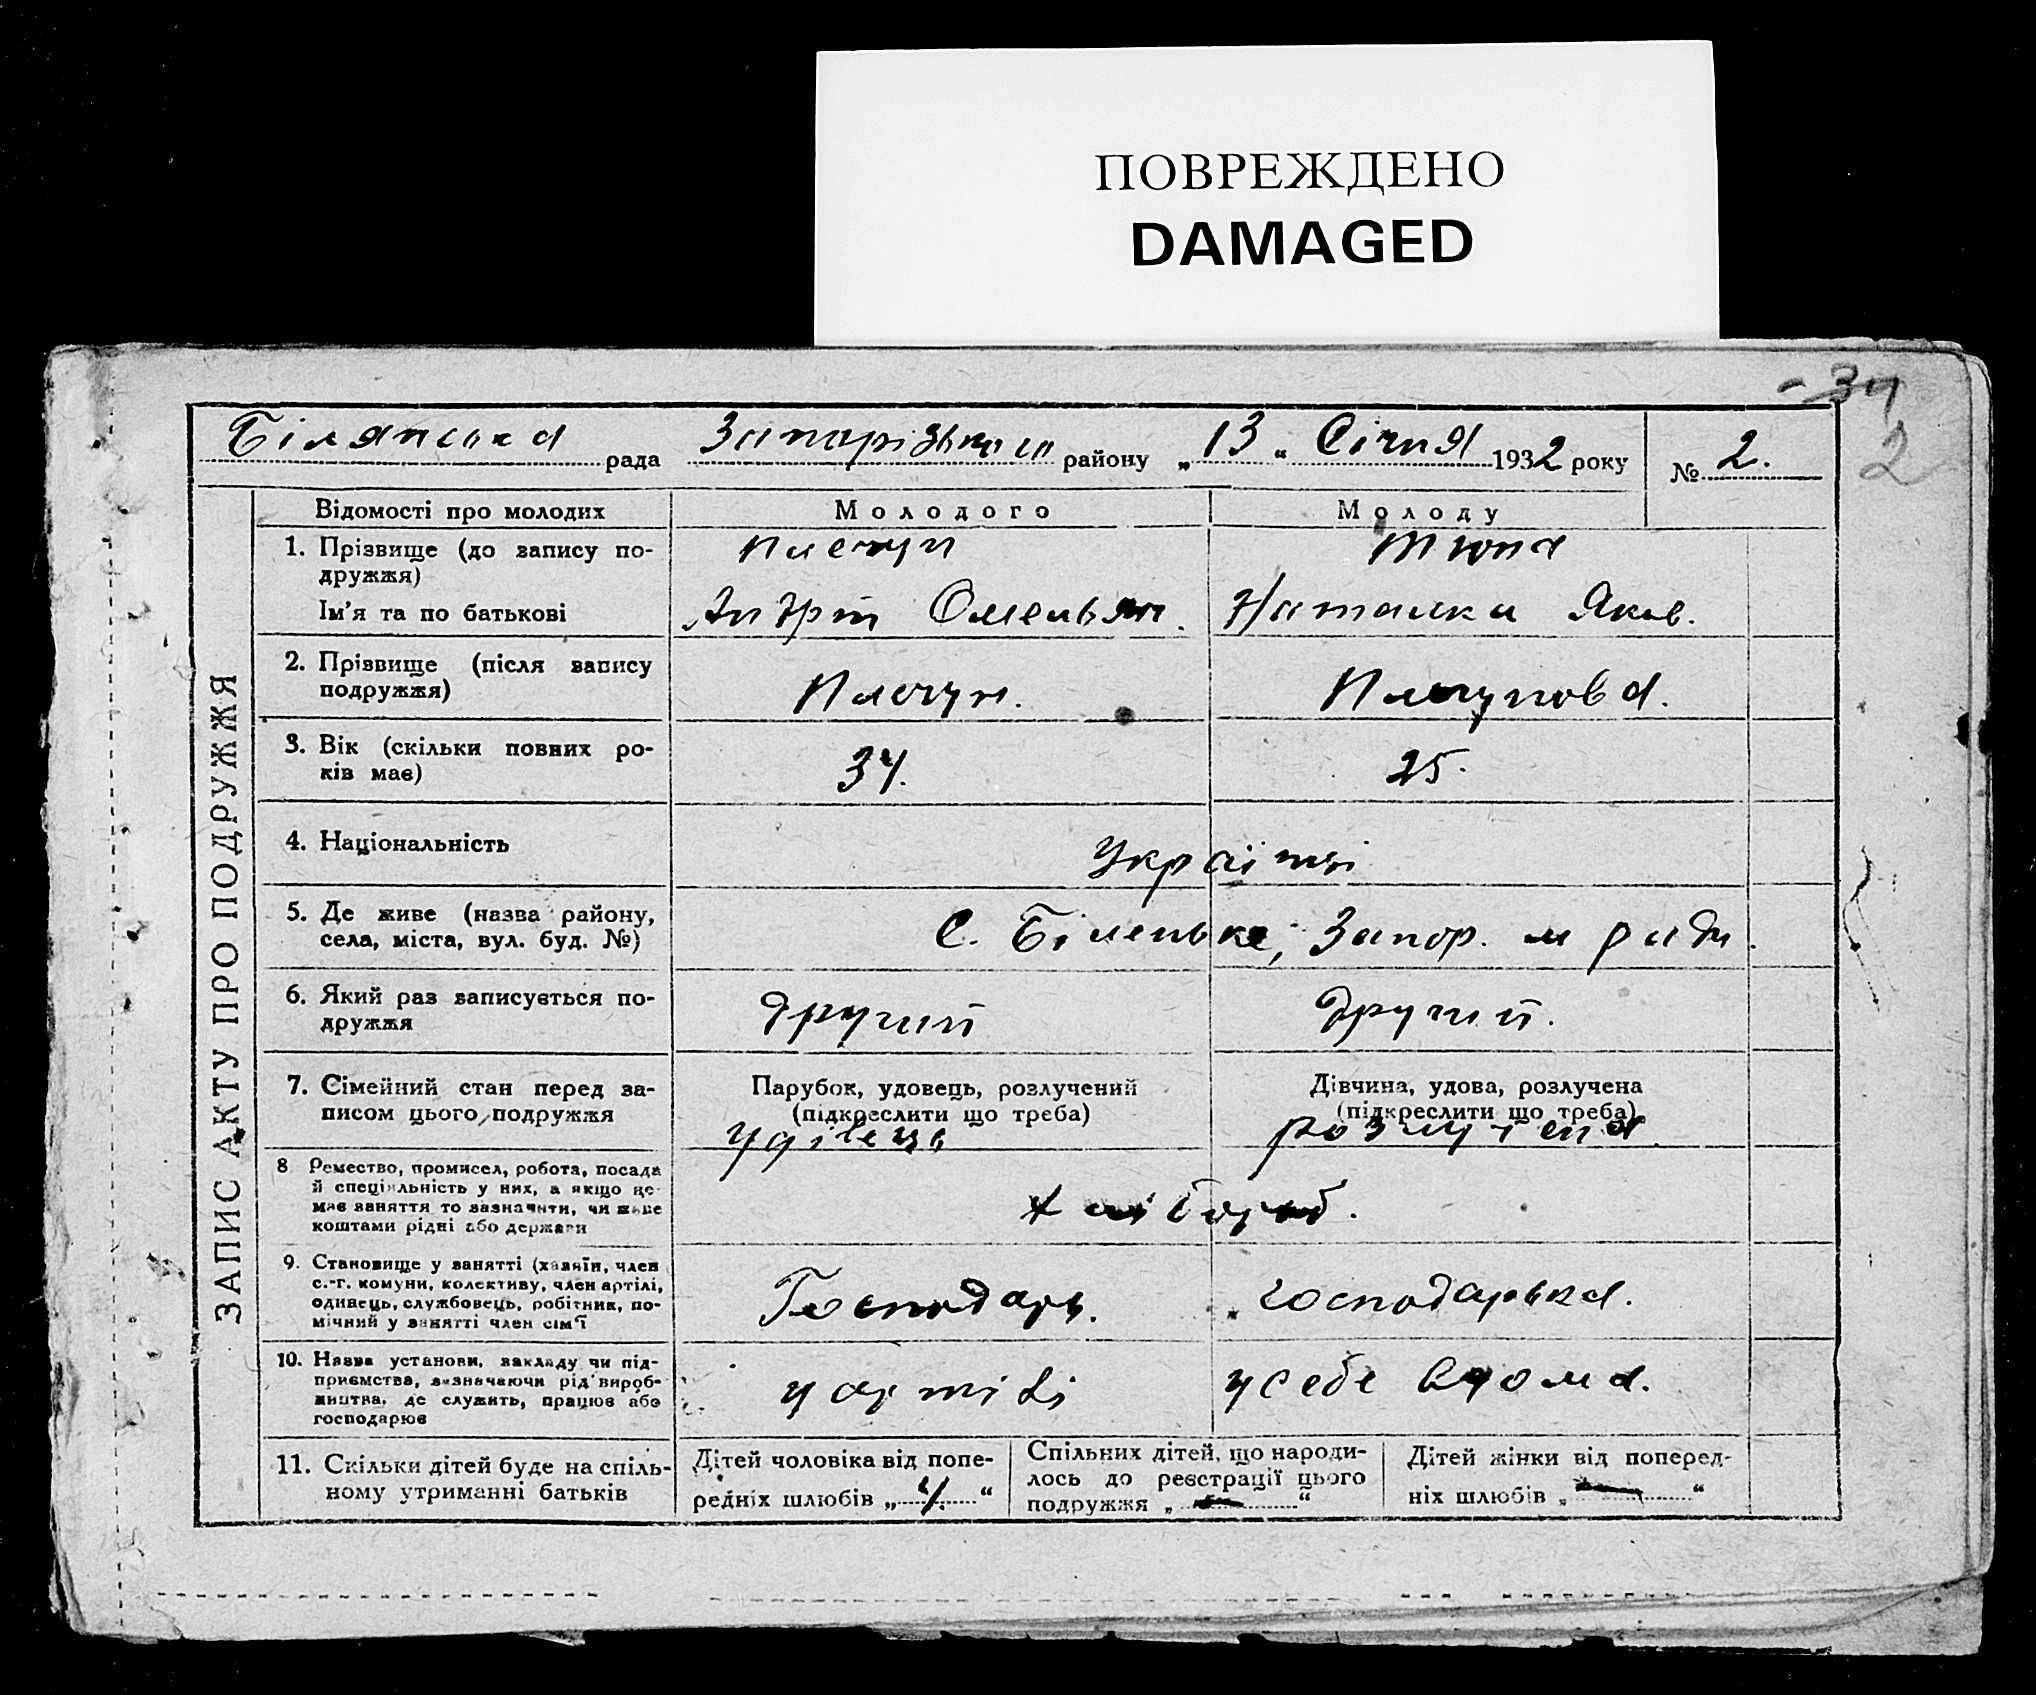 ПОВРЕЖДЕНО
DAMAGED
34
2
Білянська рада Запорізького району „13“ Січня 1932 року № 2.
ЗАПИС АКТУ ПРО ПОДРУЖЖЯ
Відомості про молодих Молодого Молоду
1. Прізвище (до запису по- Плечун Тюпа
дружжя)
Ім'я та по батькові Андрій Омельян. Наталка Яков.
2. Прізвище (після запису
подружжя) Плечун. Плечунова.
3. Вік (скільки повних ро-
ків має) 34. 25.
4. Національність Українці
5. Де живе (назва району,
села, міста, вул. буд. №) С. Біленьке, Запор. м ради.
6. Який раз записується по-
дружжя другий другий.
7. Сімейний стан перед за- Парубок, удовець, розлучений Дівчина, удова, розлучена
писом цього подружжя (підкреслити що треба) (підкреслити що треба)
удівець розлучена
8 Ремество, промисел, робота, посада
й спеціяльність у них, а якщо не
має заняття то зазначити, чи живе хлібороб.
коштами рідні або держави
9. Становище у занятті (хазяїн, член
с.-г. комуни, колективу, член артілі,
одинець, службовець, робітник, по- Господарь. господарька.
мічний у занятті член сім'ї
10. Назва установи, закладу чи під-
приємства, зазначаючи рід вироб- у артілі у себе вдома.
ництва, де служить, працює або
господарює
11. Скільки дітей буде на спіль- Дітей чоловіка від попе- Спільних дітей, що народи- Дітей жінки від поперед-
ному утриманні батьків редніх шлюбів „4.“ лось до реєстрації цього ніх шлюбів „—“
подружжя „—“